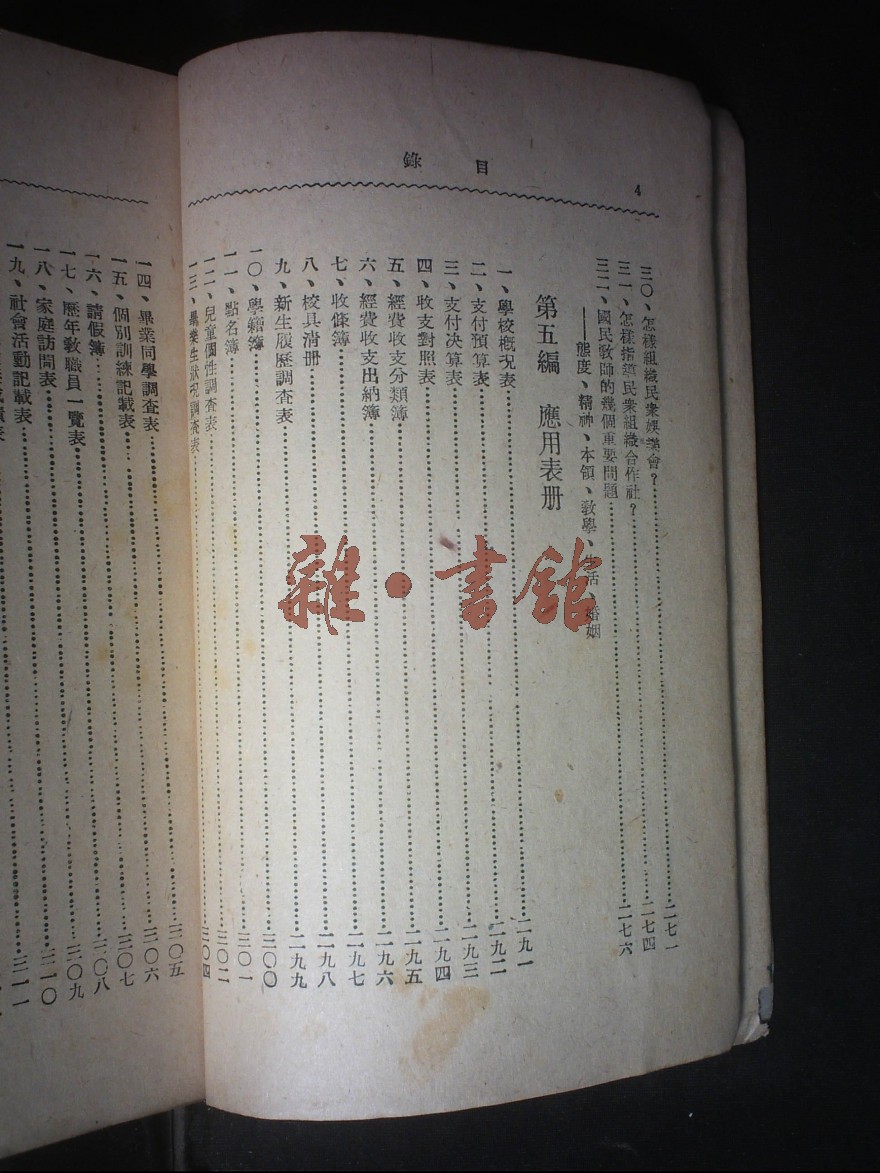 目錄
4
三〇、怎樣組織民衆娛樂會?……二七一
三一、怎樣指導民衆組織合作社?……二七四
三二、國民教師的幾個重要問題……二七六
——態度、精神、本領、教學、生活、婚姻
第五編 應用表册
一、學校概况表……二九一
二、支付預算表……二九二
三、支付决算表……二九三
四、收支對照表……二九四
五、經費收支分類簿……二九五
六、經費收支出納簿……二九六
七、收條簿……二九七
八、校具清册……二九八
九、新生履歷調查表……二九九
一〇、學籍簿……三〇〇
一一、點名簿……三〇一
一二、兒童個性調查表……三〇二
一三、畢業生狀况調查表……三〇四
一四、畢業同學調查表……三〇五
一五、個別訓練記載表……三〇六
一六、請假簿……三〇七
一七、歷年教職員一覽表……三〇八
一八、家庭訪問表……三〇九
一九、社會活動記載表……三一〇
三一一
雜·書館